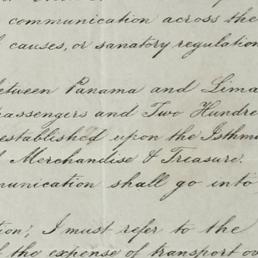 communication across the
causes, or sanatory regulation
between Panama and Lima
passengers and Two Hundre
established upon the Isthm
Merchandise & Treasure.
munication shall go into
tion; I must refer to the
the expense of transport ov